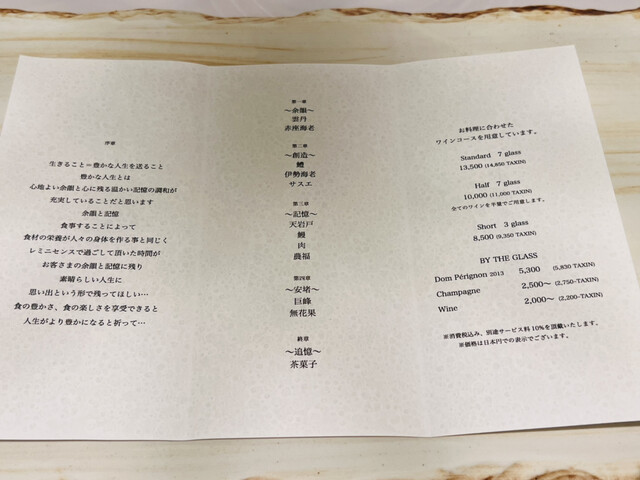 序章
生きること＝豊かな人生を送ること
豊かな人生とは
心地よい余韻と心に残る温かい記憶の調和が
充実していることだと思います
余韻と記憶
食事することによって
食材の栄養が人々の身体を作る事と同じく
レミニセンスで過ごして頂いた時間が
お客さまの余韻と記憶に残り
素晴らしい人生に
思い出という形で残ってほしい…
食の豊かさ、食の楽しさを享受できると
人生がより豊かになると祈って…
第一章
〜余韻〜
雲丹
赤座海老
第二章
〜創造〜
鱧
伊勢海老
サスエ
第三章
〜記憶〜
天岩戸
鰻
肉
農福
第四章
〜安堵〜
巨峰
無花果
終章
〜追憶〜
茶菓子
お料理に合わせた
ワインコースを用意しています。
Standard 7 glass
13,500 (14,850 TAXIN)
Half 7 glass
10,000 (11,000 TAXIN)
全てのワインを半量でご用意します。
Short 3 glass
8,500 (9,350 TAXIN)
BY THE GLASS
Dom Pérignon 2013 5,300 (5,830 TAXIN)
Champagne 2,500〜 (2,750-TAXIN)
Wine 2,000〜 (2,200-TAXIN)
※消費税込み、別途サービス料10%を頂戴いたします。
※価格は日本円での表示でございます。